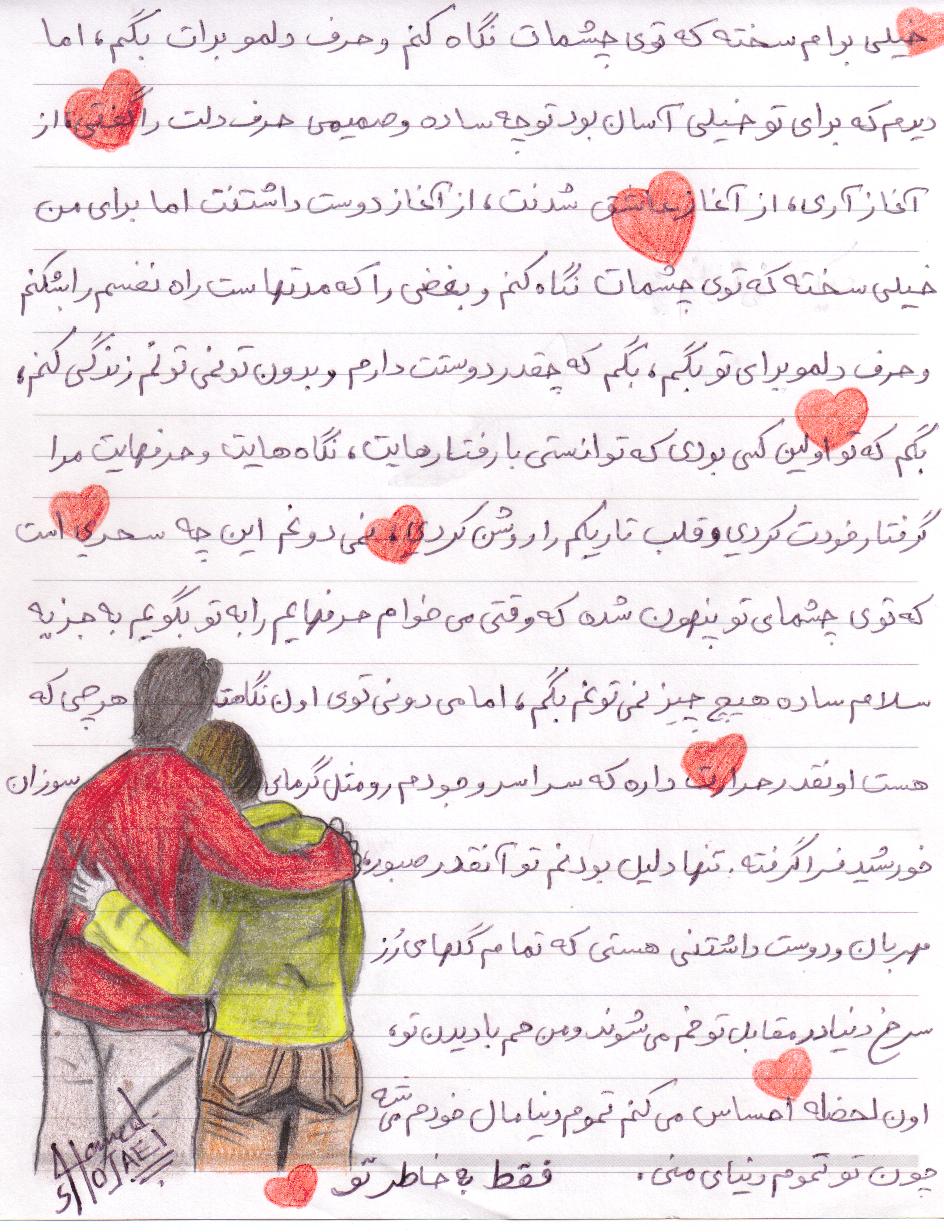 خیلی برام سخته که توی چشمات نگاه کنم و حرف دلمو برات بگم، اما
دیدم که برای تو خیلی آسان بود تو چه ساده و صمیمی حرف دلت را گفتی، از
آغاز آری، از آغاز عاشق شدنت، از آغاز دوست داشتنت اما برای من
خیلی سخته که توی چشمات نگاه کنم و بغضی را که مدتهاست راه نفسم را بشکنم
و حرف دلمو برای تو بگم، بگم که چقدر دوستت دارم و بدون تو نمی تونم زندگی کنم،
بگم که تو اولین کسی بودی که توانستی با رفتارهایت، نگاه هایت و حرفهایت مرا
گرفتار خودت کردی و قلب تاریکم را روشن کردی، نمی دونم این چه سحری است
که توی چشمای تو پنهون شده که وقتی می خوام حرفهایم را به تو بگویم به جز یه
سلام ساده هیچ چیز نمی تونم بگم، اما می دونی توی اون نگاهت هر چی که
هست اونقدر حرارت داره که سراسر وجودم رو مثل گرمای سوزان
خورشید فرا گرفته. تنها دلیل بودنم تو آنقدر صبور،
مهربان و دوست داشتنی هستی که تمام گلهای رُز
سرخ دنیا در مقابل تو خم می شوند و من هم با دیدن تو،
اون لحضه احساس می کنم تموم دنیا مال خودم میشه
چون تو تموم دنیای منی. فقط به خاطر تو
Hamed
SHOJAEI